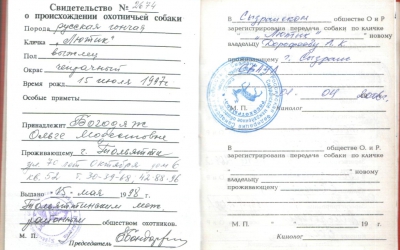 Свидетельство № 2674
о происхождении охотничьей собаки
Порода русская гончая
Кличка „Лютик"
Пол выжлец
Окрас чепрачный
Время рожд. 15 июля 1997г.
Особые приметы
Принадлежит
Ольге Модестовне
Проживающему, г. Тольятти
ул. 70 лет Октября
кв. 52 т.
Выдано 15 мая 1998 г.
Тольяттинским
районным обществом охотников.
М. П. Председатель
В Сызранском обществе О и Р
зарегистрировано передачи собаки по кличке
„Лютик" новому
владельцу
проживающему г. Сызрань
М. П. 04
Кинолог
В обществе О и Р
зарегистрировано передачи собаки по кличке
" новому
владельцу
проживающему
М. П. 19 г.
Кинолог